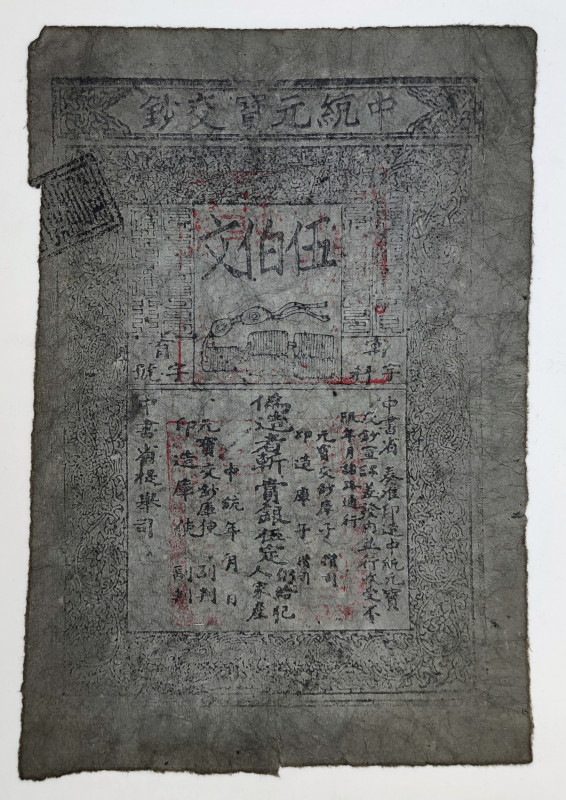 中統元寶交鈔
伍伯文
字料
字號
中書省 奏准印造中統元寶
交鈔宣課差發內並行收受不
限年月諸路通行
元寶交鈔庫子 攢司
印造庫子 攢司
偽造者斬賞銀伍定
仍給犯
人家產
中統 年 月 日
元寶交鈔庫使 副判
印造庫使 副判
中書省提舉司